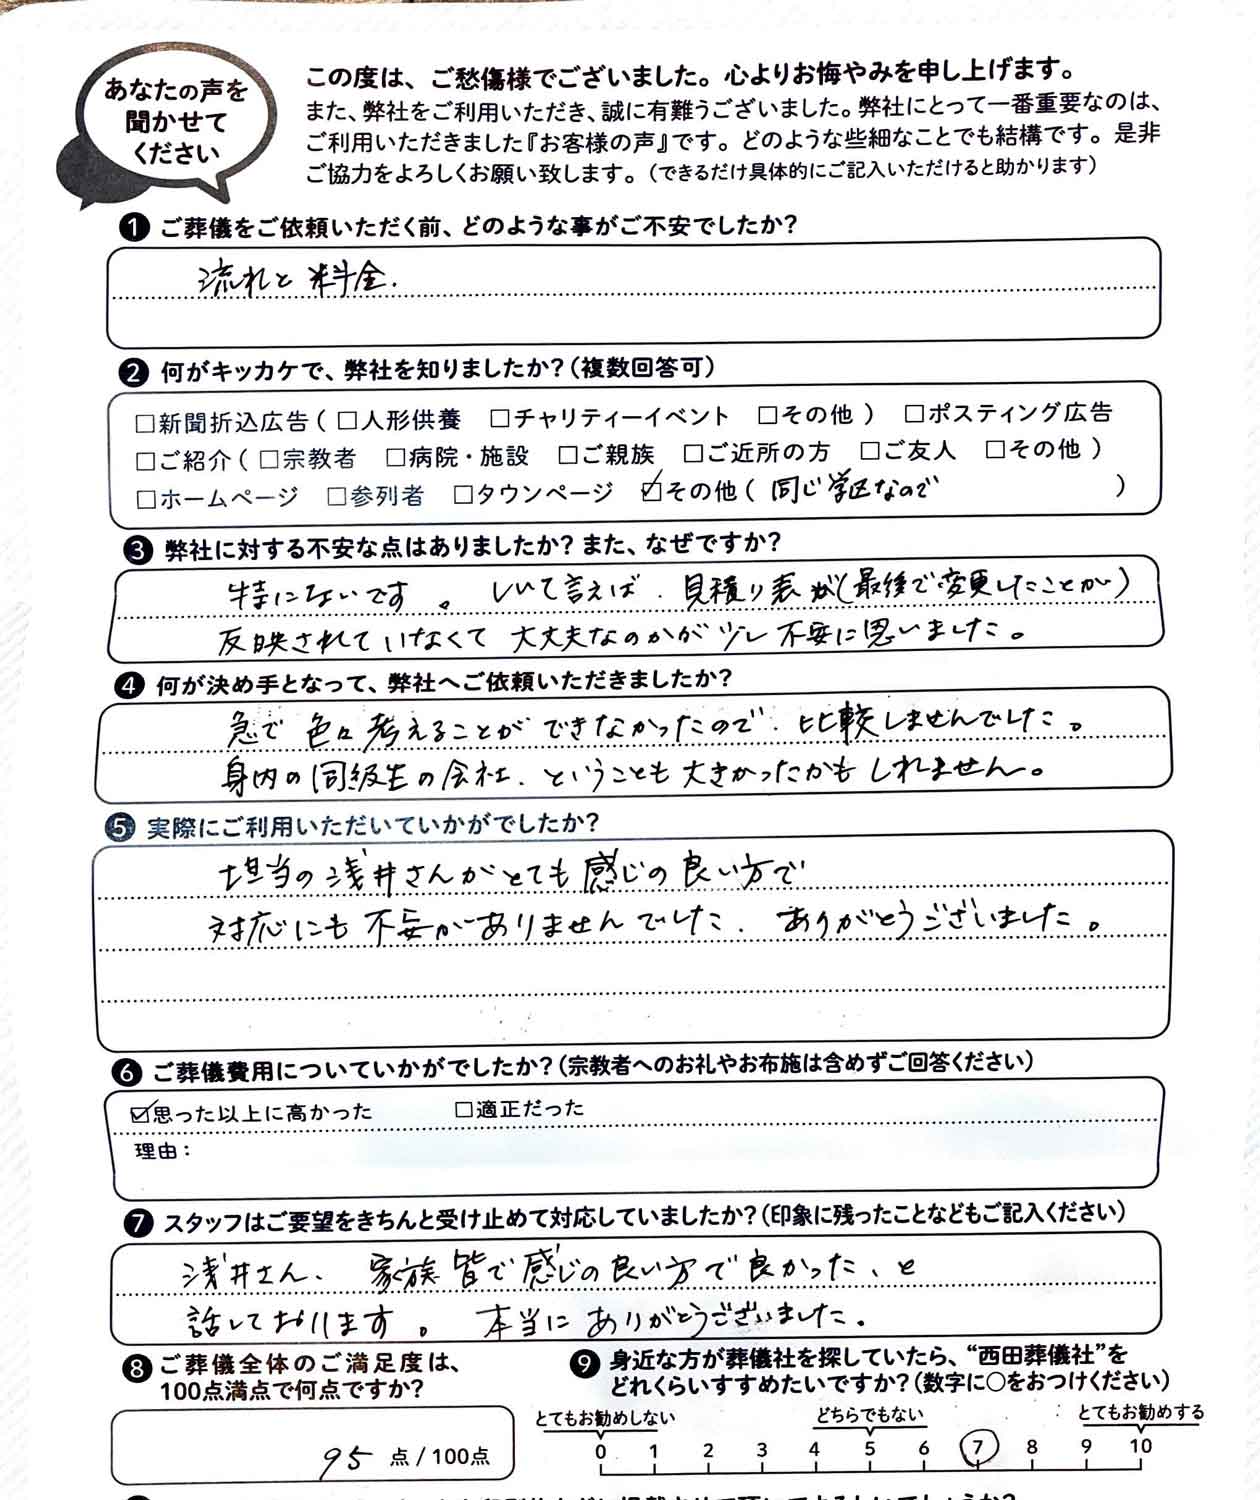 あなたの声を
聞かせて
ください
この度は、ご愁傷様でございました。心よりお悔やみを申し上げます。
また、弊社をご利用いただき、誠に有難うございました。弊社にとって一番重要なのは、
ご利用いただきました『お客様の声』です。どのような些細なことでも結構です。是非
ご協力をよろしくお願い致します。（できるだけ具体的にご記入いただけると助かります）
❶ ご葬儀をご依頼いただく前、どのような事がご不安でしたか？
流れと料金.
❷ 何がキッカケで、弊社を知りましたか？（複数回答可）
□新聞折込広告（□人形供養 □チャリティーイベント □その他） □ポスティング広告
□ご紹介（□宗教者 □病院・施設 □ご親族 □ご近所の方 □ご友人 □その他）
□ホームページ □参列者 □タウンページ ☑その他（同じ学区なので）
❸ 弊社に対する不安な点はありましたか？また、なぜですか？
特にないです。しいて言えば、見積り表が（最後で変更したことが）
反映されていなくて大丈夫なのかが少し不安に思いました。
❹ 何が決め手となって、弊社へご依頼いただきましたか？
急で色々考えることができなかったので、比較しませんでした。
身内の同級生の会社、ということも大きかったかもしれません。
❺ 実際にご利用いただいていかがでしたか？
担当の浅井さんがとても感じの良い方で
対応にも不安がありませんでした、ありがとうございました。
❻ ご葬儀費用についていかがでしたか？（宗教者へのお礼やお布施は含めずご回答ください）
☑思った以上に高かった □適正だった
理由：
❼ スタッフはご要望をきちんと受け止めて対応していましたか？（印象に残ったことなどもご記入ください）
浅井さん、家族皆で感じの良い方で良かった、と
話しております。本当にありがとうございました。
❽ ご葬儀全体のご満足度は、
100点満点で何点ですか？
95 点/100点
❾ 身近な方が葬儀社を探していたら、“西田葬儀社”を
どれくらいすすめたいですか？（数字に○をおつけください）
とてもお勧めしない どちらでもない とてもお勧めする
0 1 2 3 4 5 6 7 8 9 10